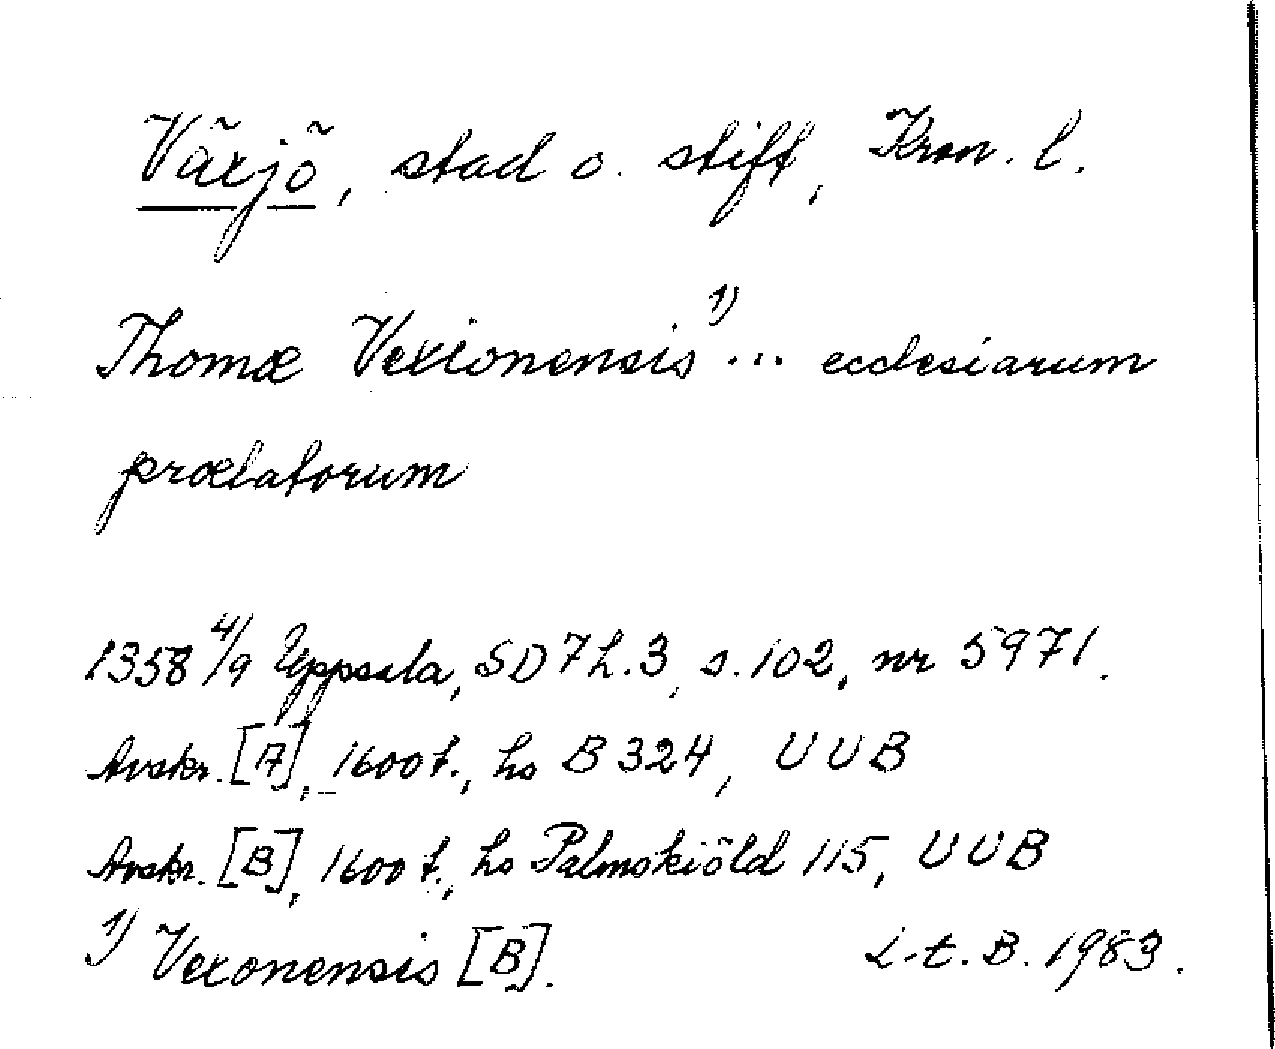 Växjö, stad o. stift, Kron. l.
Thomæ Vexionensis 1) ... ecclesiarum
prælatorum
1358 4/9 Uppsala, SD 7 h. 3, s. 102, nr 5971.
Avskr. [A], 1600 t., hs B 324, UUB
Avskr. [B], 1600 t., hs Palmskiöld 115, UUB
1) Vexonensis [B].
L-t. B. 1983.